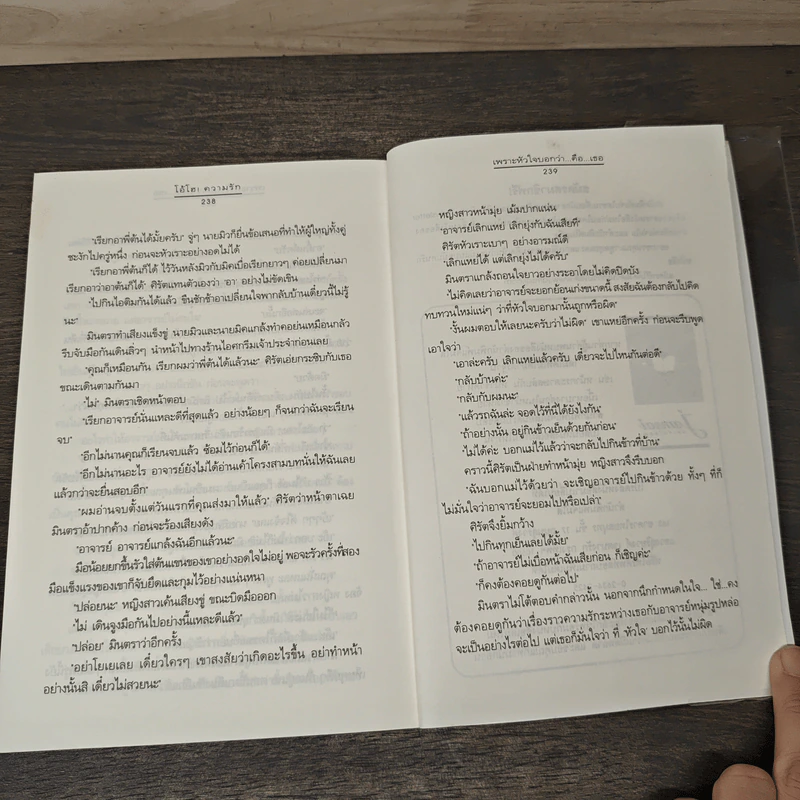 โอ้โฮ! ความรัก
238
"เรียกอาพี่ต้นได้มั้ยครับ" จู่ๆ นายมิวก็ยื่นข้อเสนอที่ทำให้ผู้ใหญ่ทั้งคู่
ชะงักไปครู่หนึ่ง ก่อนจะหัวเราะอย่างอดไม่ได้
"เรียกอาพี่ต้นก็ได้ ไว้วันหลังมิวกับมิคเบื่อเรียกยาวๆ ค่อยเปลี่ยนมา
เรียกอาว่าอาต้นก็ได้" ศิรัตแทนตัวเองว่า 'อา' อย่างไม่ขัดเขิน
"ไปกินไอติมกันได้แล้ว ขืนชักช้าอาเปลี่ยนใจพากลับบ้านเดี๋ยวนี้ไม่รู้
นะ"
มินตราทำเสียงแข็งขู่ นายมิวและนายมิคแกล้งทำคอย่นเหมือนกลัว
รีบจับมือกันเดินลิ่วๆ นำหน้าไปทางร้านไอศกรีมเจ้าประจำก่อนเลย
"คุณก็เหมือนกัน เรียกผมว่าพี่ต้นได้แล้วนะ" ศิรัตเอ่ยกระซิบกับเธอ
ขณะเดินตามกันมา
"ไม่" มินตราเชิดหน้าตอบ
"เรียกอาจารย์นั่นแหละดีที่สุดแล้ว อย่างน้อยๆ ก็จนกว่าฉันจะเรียน
จบ"
"อีกไม่นานคุณก็เรียนจบแล้ว ซ้อมไว้ก่อนก็ได้"
"อีกไม่นานอะไร อาจารย์ยังไม่ได้อ่านเค้าโครงสามบทนั่นให้ฉันเลย
แล้วกว่าจะยื่นสอบอีก"
"ผมอ่านจบตั้งแต่วันแรกที่คุณส่งมาให้แล้ว" ศิรัตว่าหน้าตาเฉย
มินตราอ้าปากค้าง ก่อนจะร้องเสียงดัง
"อาจารย์ อาจารย์แกล้งฉันอีกแล้วนะ"
มือน้อยยกขึ้นรัวใส่ต้นแขนของเขาอย่างอดใจไม่อยู่ พอจะรัวครั้งที่สอง
มือแข็งแรงของเขาก็จับยึดและกุมไว้อย่างแน่นหนา
"ปล่อยนะ" หญิงสาวเค้นเสียงขู่ ขณะบิดมือออก
"ไม่ เดินจูงมือกันไปอย่างนี้แหละดีแล้ว"
"ปล่อย" มินตราว่าอีกครั้ง
"อย่าโยเยเลย เดี๋ยวใครๆ เขาสงสัยว่าเกิดอะไรขึ้น อย่าทำหน้า
อย่างนั้นสิ เดี๋ยวไม่สวยนะ"
เพราะหัวใจบอกว่า...คือ...เธอ
239
หญิงสาวหน้ามุ่ย เม้มปากแน่น
"อาจารย์เลิกแหย่ เลิกยุ่งกับฉันเสียที"
ศิรัตหัวเราะเบาๆ อย่างอารมณ์ดี
"เลิกแหย่ได้ แต่เลิกยุ่งไม่ได้ครับ"
มินตราแกล้งถอนใจยาวอย่างระอาโดยไม่คิดปิดบัง
"ไม่คิดเลยว่าอาจารย์จะยอกย้อนเก่งขนาดนี้ สงสัยฉันต้องกลับไปคิด
ทบทวนใหม่แน่ๆ ว่าที่หัวใจบอกมานั้นถูกหรือผิด"
"งั้นผมตอบให้เลยนะครับว่าไม่ผิด" เขาแหย่อีกครั้ง ก่อนจะรีบพูด
เอาใจว่า
"เอาล่ะครับ เลิกแหย่แล้วครับ เดี๋ยวจะไปไหนกันต่อดี"
"กลับบ้านค่ะ"
"กลับกับผมนะ"
"แล้วรถฉันล่ะ จอดไว้ที่นี่ได้ยังไงกัน"
"ถ้าอย่างนั้น อยู่กินข้าวเย็นด้วยกันก่อน"
"ไม่ได้ค่ะ บอกแม่ไว้แล้วว่าจะกลับไปกินข้าวที่บ้าน"
คราวนี้ศิรัตเป็นฝ่ายทำหน้ามุ่ย หญิงสาวจึงรีบบอก
"ฉันบอกแม่ไว้ด้วยว่า จะเชิญอาจารย์ไปกินข้าวด้วย ทั้งๆ ที่ก็
ไม่มั่นใจว่าอาจารย์จะยอมไปหรือเปล่า"
ศิรัตจึงยิ้มกว้าง
"ไปกินทุกเย็นเลยได้มั้ย"
"ถ้าอาจารย์ไม่เบื่อหน้าฉันเสียก่อน ก็เชิญค่ะ"
"ก็คงต้องคอยดูกันต่อไป"
มินตราไม่โต้ตอบคำกล่าวนั้น นอกจากนึกกำหนดในใจ... ใช่...คง
ต้องคอยดูกันว่าเรื่องราวความรักระหว่างเธอกับอาจารย์หนุ่มรูปหล่อ
จะเป็นอย่างไรต่อไป แต่เธอก็มั่นใจว่า ที่ 'หัวใจ' บอกไว้นั้นไม่ผิด